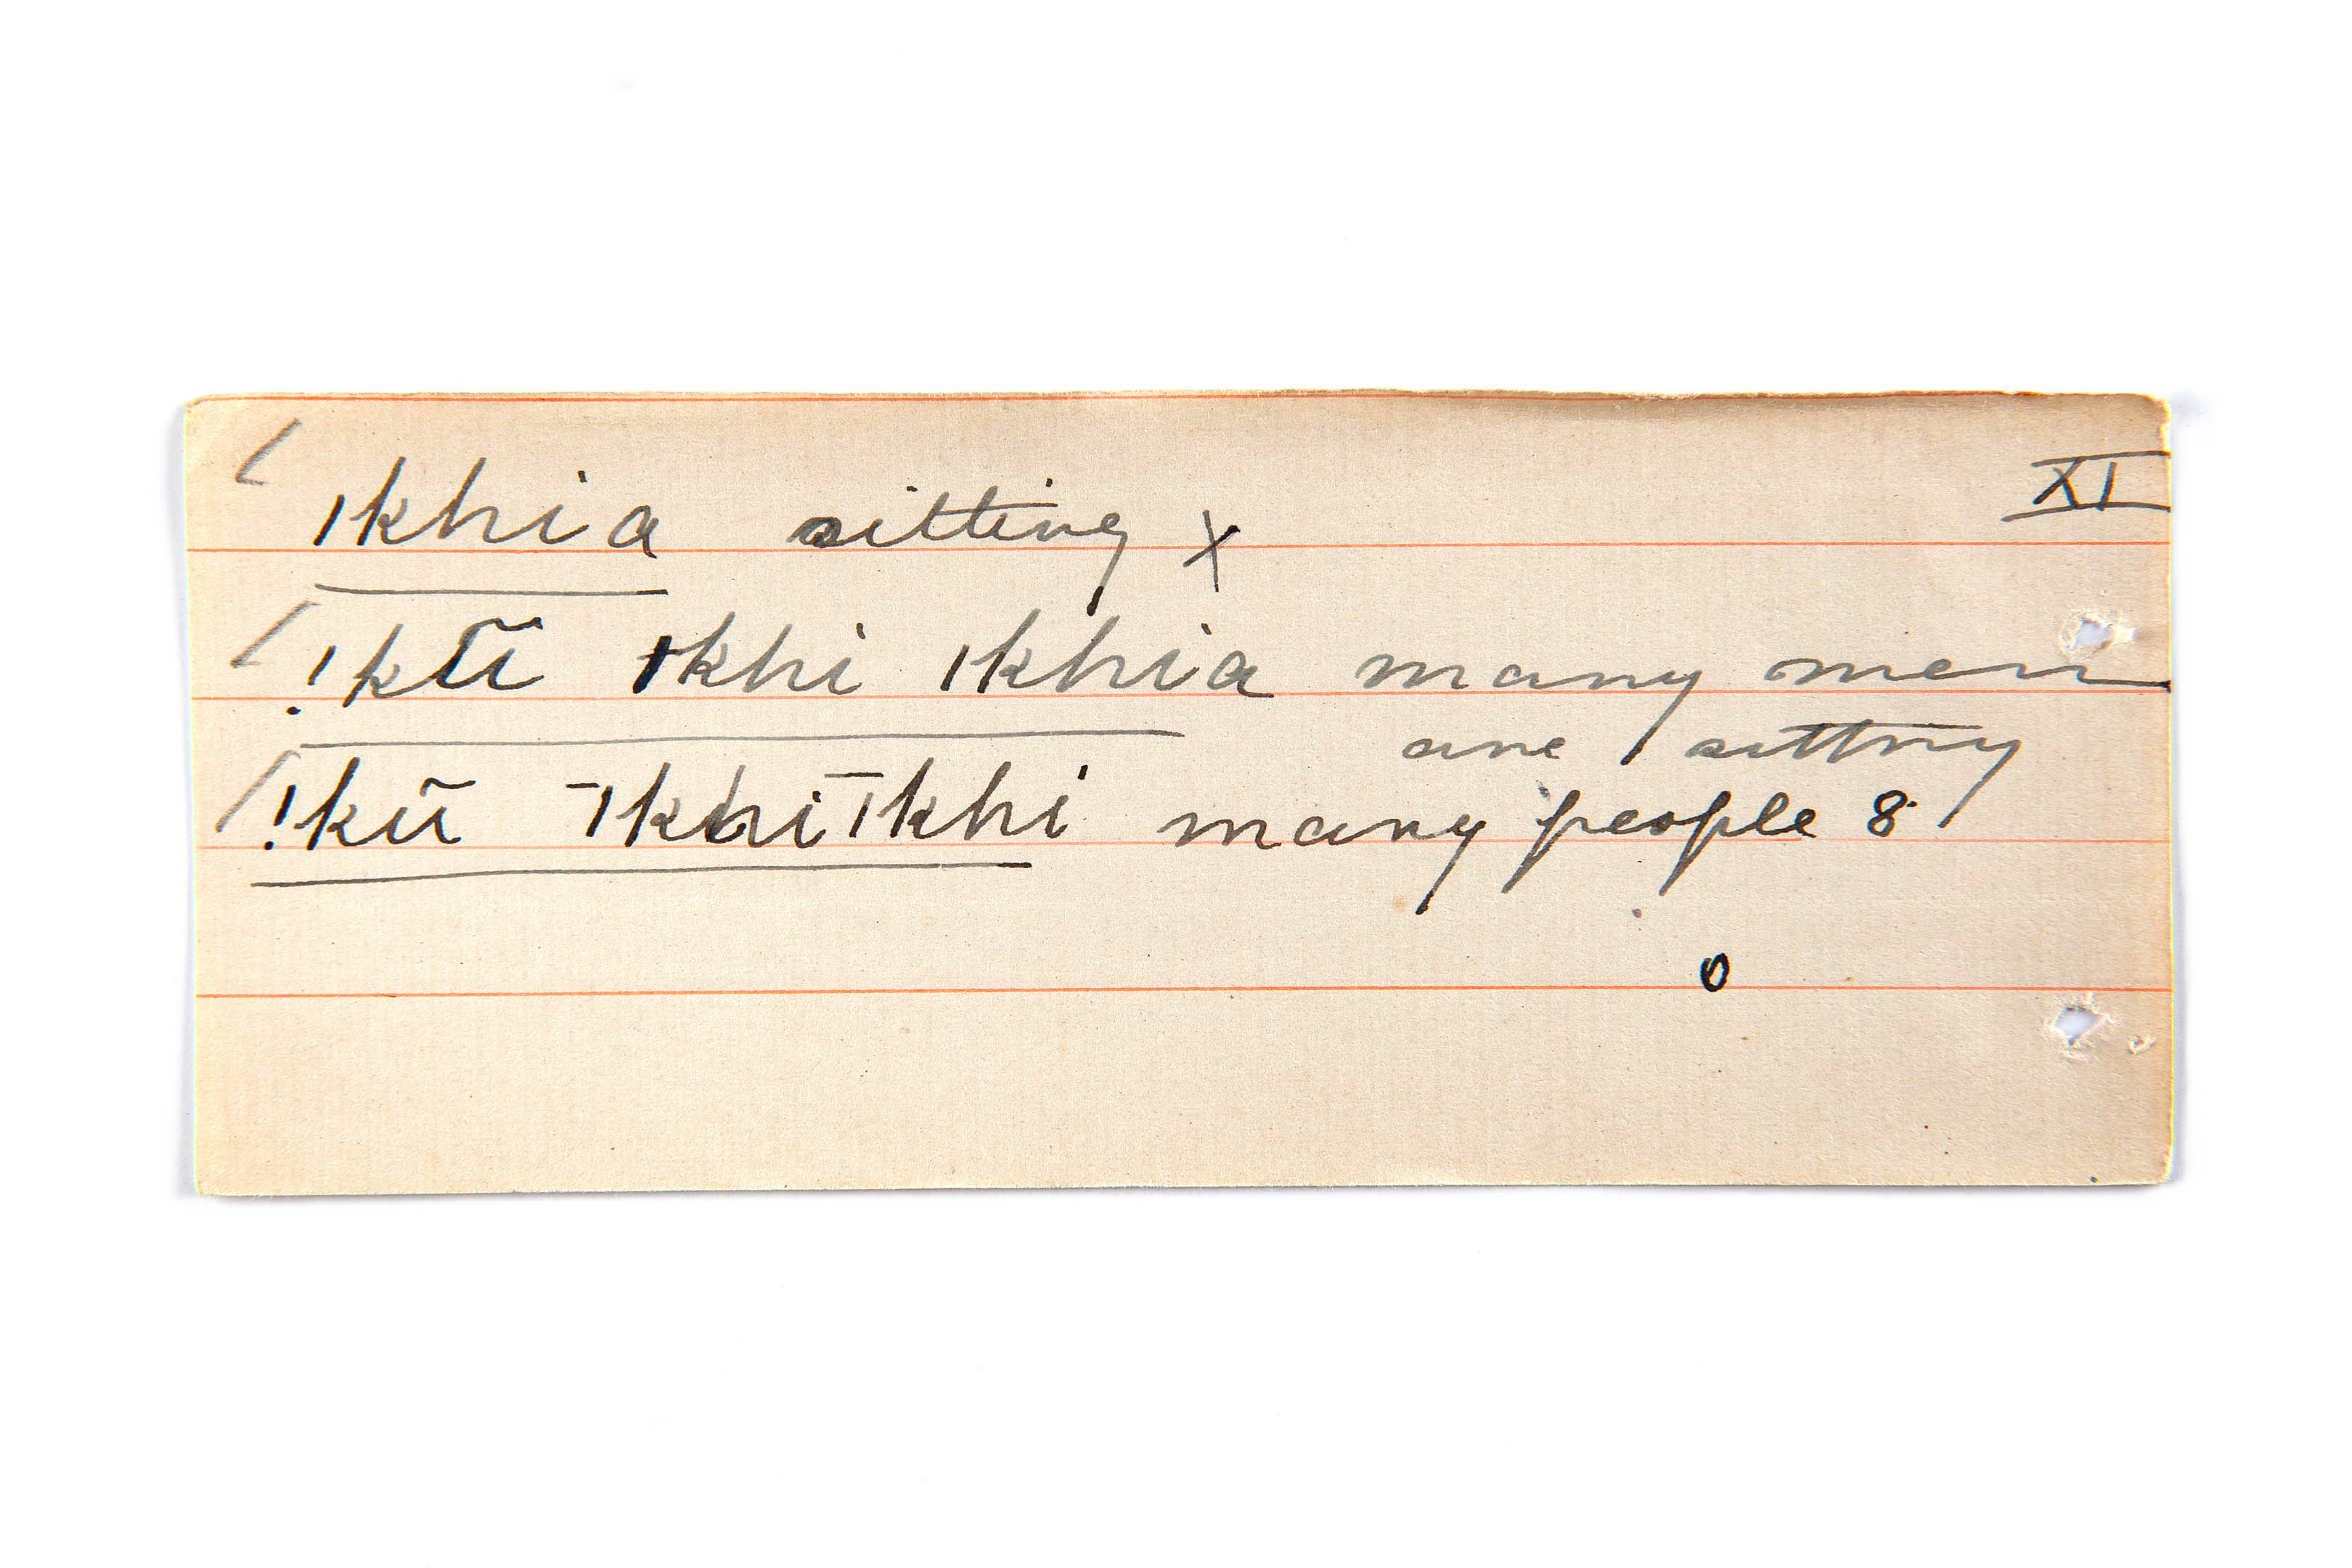 XI
ǀkhia sitting x
!kũ ǀkhi ǀkhia many men
are sitting
!kũ ¯ǀkhi ¯ǀkhi many people 8
o